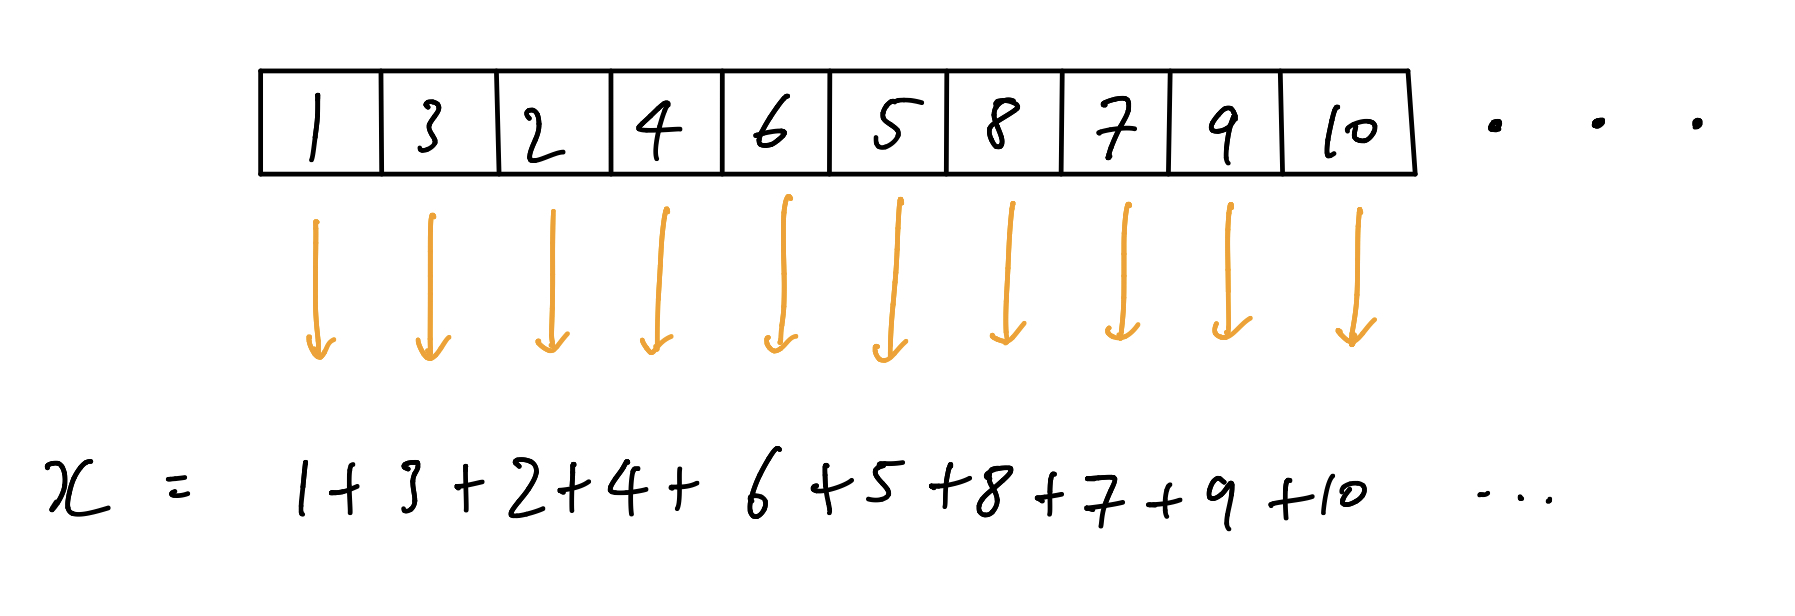 1 3 2 4 6 5 8 7 9 10 . . .
x = 1 + 3 + 2 + 4 + 6 + 5 + 8 + 7 + 9 + 10 ...